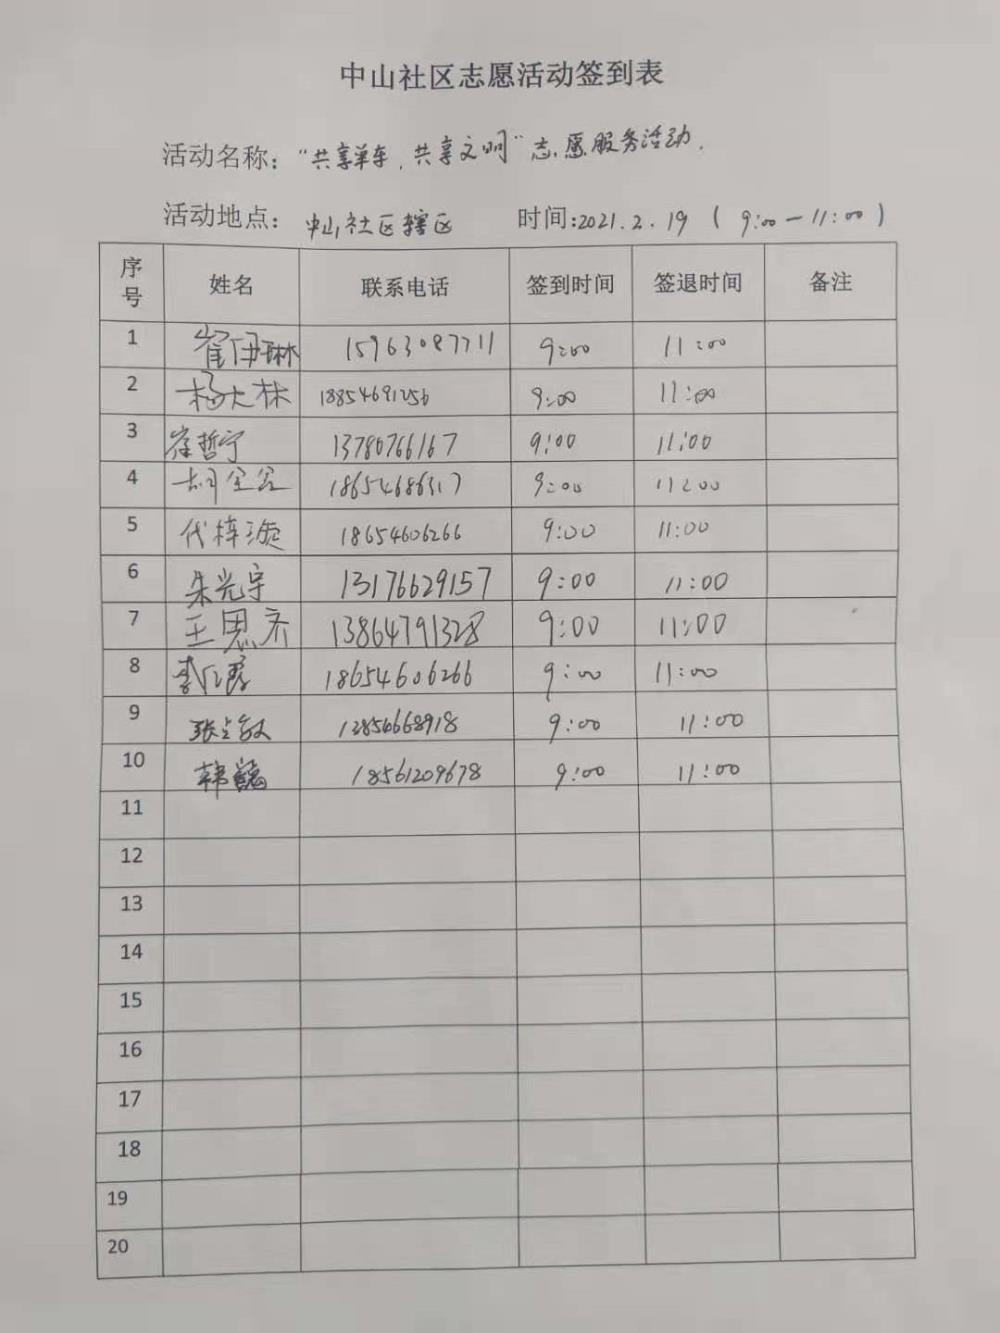 中山社区志愿活动签到表
活动名称："共享单车，共享文明"志愿服务活动.
活动地点：中山社区辖区 时间:2021.2.19 (9:00-11:00)
序号 姓名 联系电话 签到时间 签退时间 备注
1 崔伊琳 15963087711 9:00 11:00
2 杨大林 18854691256 9:00 11:00
3 崔哲宁 13780766167 9:00 11:00
4 胡 18654686317 9:00 11:00
5 代梓漩 18654606266 9:00 11:00
6 朱光宇 13176629157 9:00 11:00
7 王思齐 13864791328 9:00 11:00
8 李 18654606266 9:00 11:00
9 张 9:00 11:00
10 韩 18561209678 9:00 11:00
11
12
13
14
15
16
17
18
19
20